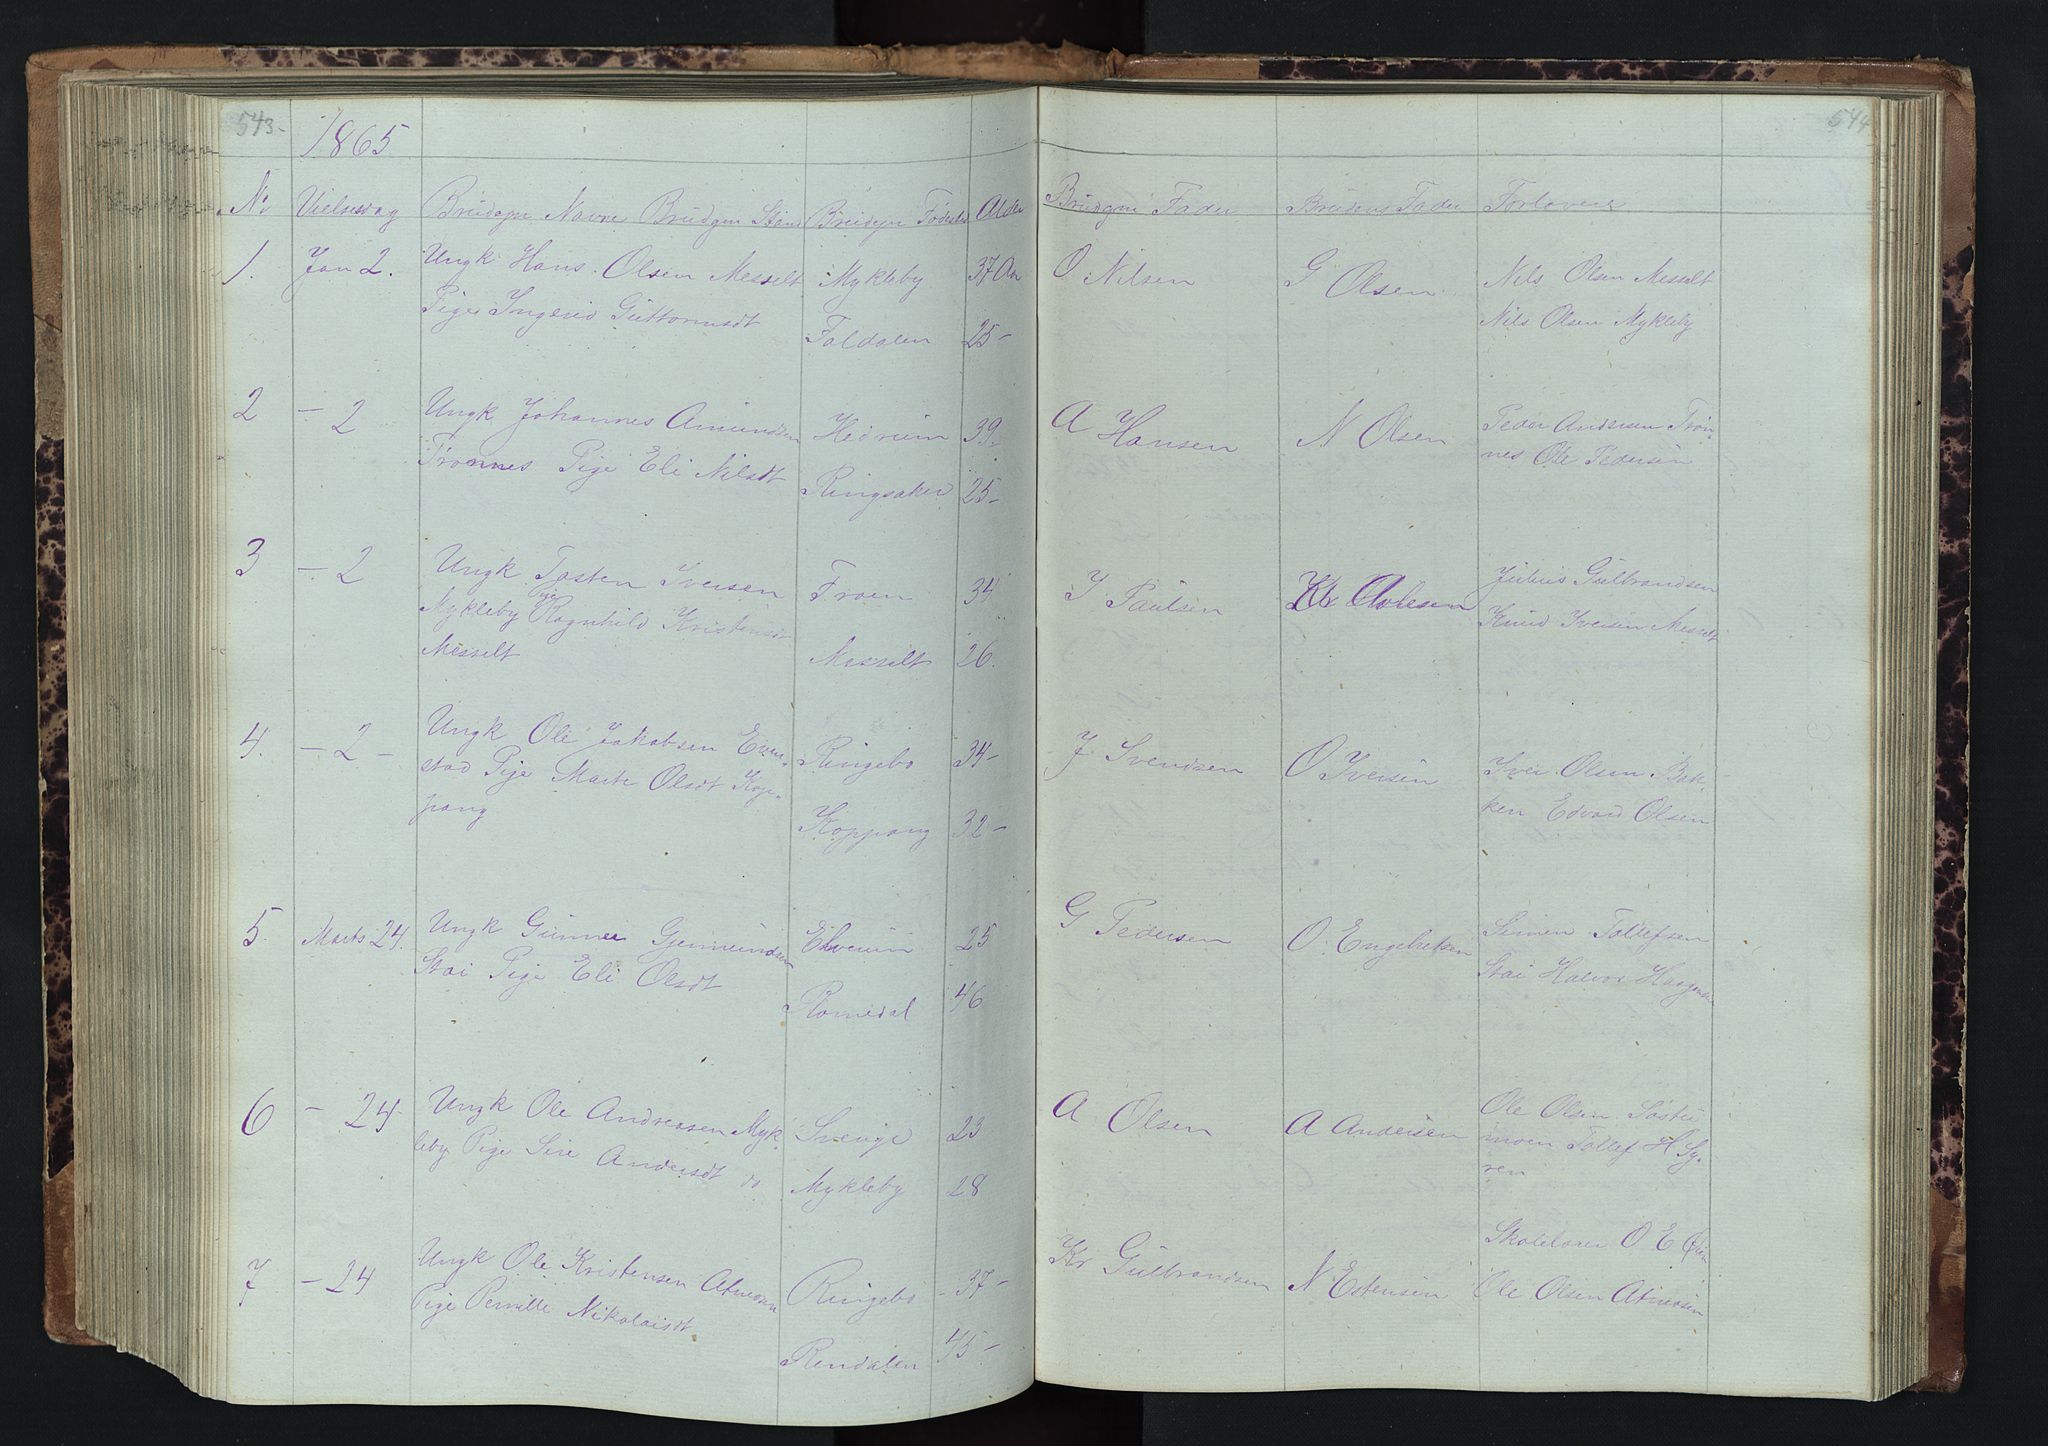 543-
1865
No Vielsesdag Brudgm Navne Brudgm Stand Brudgm Fødested Alder
1. Jan 2. Ungk Hans Olsen Messelt Mykleby 37 Aar
Pige Ingerid Guttormsdt
Foldalen 25-
2 - 2 Ungk Johannes Amundsen Hedrum 39.
Trønnes Pige Eli Nilsdt Ringsaker 25-
3 - 2 Ungk Tosten Iversen Froen 34
Mykleby Pige Ragnhild Kristensdt
Messelt Messelt 26.
4. - 2 - Ungk Ole Jakobsen Even-
stad Pige Marte Olsdt Kop- Ringebo 34-
pang Koppang 32-
5. Marts 24. Ungk Gunner Gjermundsen Elverum 25
Stai Pige Eli Olsdt
Romedal 46
6 - 24- Ungk Ole Andreasen Myk- Sverige 23
leby Pige Siri Andersdt
Mykleby 28
7 - 24 Ungk Ole Kristensen Atneosen Ringebo - 37-
Pige Pernille Nikolaisdt
Rendalen 45-
544
Brudgm Fader Brudens Fader Forlovere
O Nilsen G Olsen Nils Olsen Messelt
Nils Olsen Mykleby
A Hansen N Olsen Peder Andersen Trøn-
nes Ole Pedersen
I Paulsen Kr Julius Gulbrandsen
Knud Iversen Messelt
J Svendsen O Iversen Iver Olsen Bak-
ken Edvard Olsen
G Pedersen O. Engebretsen Simen Tollefsen
Stai Halvor Haagensen
A Olsen A Andersen Ole Olsen Søstu
moen Tollef H Sy-
ren
Kr Gulbrandsen N Estensen Skolelærer O E Øien
Ole Olsen Atneosen